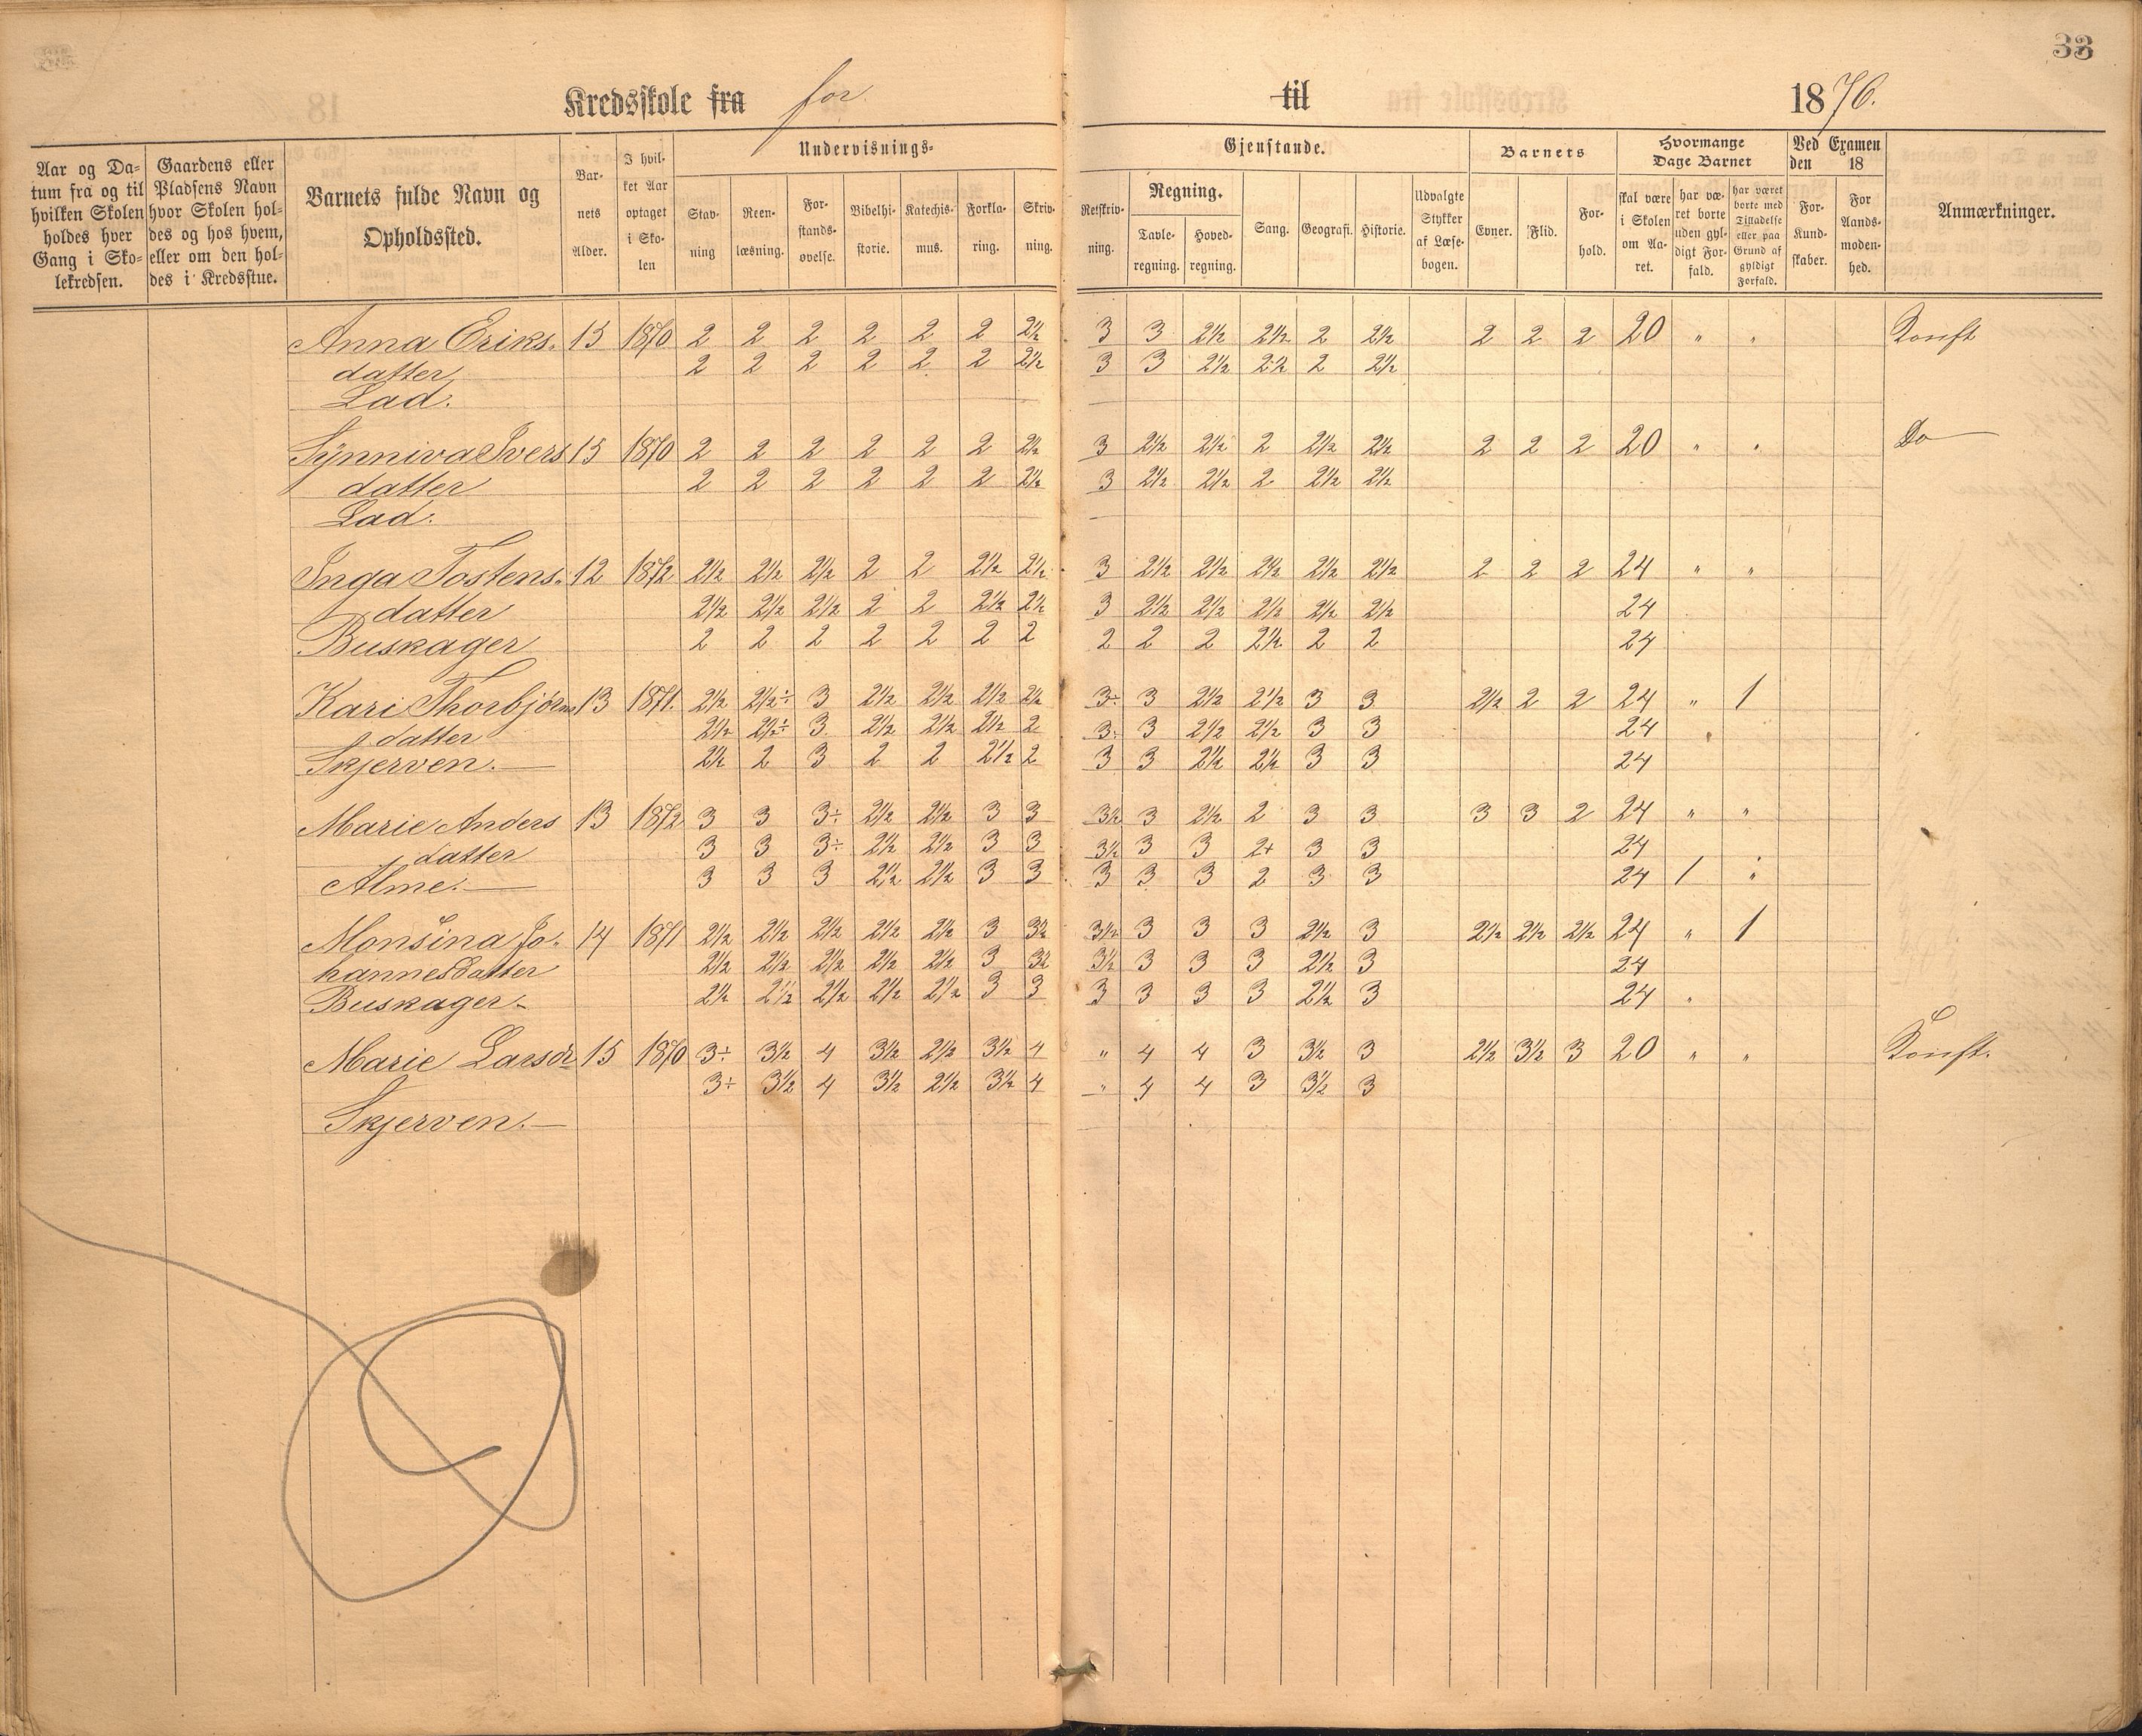 33
Kredsskole fra for til 1876.
Aar og Da-
tum fra og til
hvilken Skolen
holdes hver
Gang i Sko-
lekredsen.
Gaardens eller
Pladsens Navn
hvor Skolen hol-
des og hos hvem,
eller om den hol-
des i Kredsstue.
Barnets fulde Navn og
Opholdssted.
Bar-
nets
Alder.
I hvil-
ket Aar
optaget
i Sko-
len
Undervisnings-
Stav-
ning
Reen-
læsning.
For-
stands-
øvelse.
Bibelhi-
storie.
Katechis-
mus.
Forkla-
ring.
Skriv-
ning.
Gjenstande.
Retskriv-
ning.
Regning.
Tavle-
regning.
Hoved-
regning.
Sang.
Geografi.
Historie.
Udvalgte
Stykker
af Læse-
bogen.
Barnets
Evner.
Flid.
For-
hold.
Hvormange
Dage Barnet
skal være
i Skolen
om Aa-
ret.
har væ-
ret borte
uden gyl-
digt For-
fald.
har været
borte med
Tilladelse
eller paa
Grund af
gyldigt
Forfald.
Ved Examen
den 18
For-
Kund-
skaber.
For
Aands-
moden-
hed.
Anmærkninger.
Anna Eriks. 15 1870 2 2 2 2 2 2 2½ 3 3 2½ 2½ 2 2½ 2 2 2 20 " " Konft
datter 2 2 2 2 2 2 2½ 3 3 2½ 2½ 2 2½
Lad.
Synniva Ivers 15 1870 2 2 2 2 2 2 2½ 3 2½ 2½ 2 2½ 2½ 2 2 2 20 " " Do
datter 2 2 2 2 2 2 2½ 3 2½ 2½ 2 2½ 2½
Lad.
Inga Tostens. 12 1872 2½ 2½ 2½ 2 2 2½ 2½ 3 2½ 2½ 2½ 2½ 2½ 2 2 2 24 " "
datter 2½ 2½ 2½ 2 2 2½ 2½ 3 2½ 2½ 2½ 2½ 2½ 24
Buskager 2 2 2 2 2 2 2 2 2 2 2½ 2 2 24
Kari Thorbjørns 13 1871. 2½ 2½÷ 3 2½ 2½ 2½ 2½ 3÷ 3 2½ 2½ 3 3 2½ 2 2 24 " 1
datter 2½ 2½÷ 3 2½ 2½ 2½ 2 3÷ 3 2½ 2½ 3 3 24 "
Skjerven. 2½ 2 3 2 2 2½ 2 3 3 2½ 2½ 3 3 24
Marie Anders 13 1872 3 3 3÷ 2½ 2½ 3 3 3½ 3 2½ 2 3 3 3 3 2 24 " "
datter 3 3 3÷ 2½ 2½ 3 3 3½ 3 3 2+ 3 3 24
Alme. 3 3 3 2½ 2½ 3 3 3 3 3 2 3 3 24 1 "
Monsina Jo- 14 1871 2½ 2½ 2½ 2½ 2½ 3 3½ 3½ 3 3 3 2½ 3 2½ 2½ 2½ 24 " 1
hannesdatter 2½ 2½ 2½ 2½ 2½ 3 3½ 3½ 3 3 3 2½ 3 24
Buskager 2½ 2½ 2½ 2½ 2½ 3 3 3 3 3 3 2½ 3 24 "
Marie Larsdr 15 1870 3÷ 3½ 4 3½ 2½ 3½ 4 " 4 4 3 3½ 3 2½ 3½ 3 20 " " Konft.
3÷ 3½ 4 3½ 2½ 3½ 4 " 4 4 3 3½ 3
Skjerven.